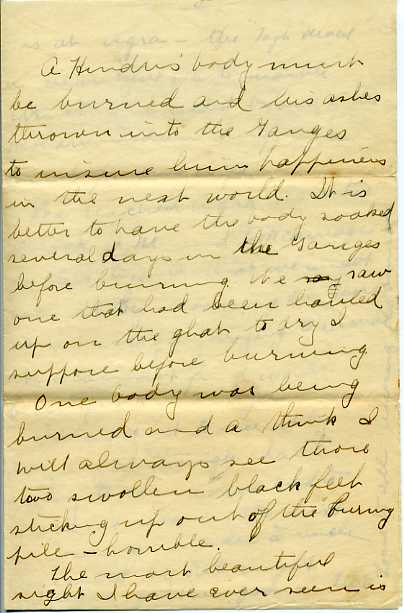 A Hindu's body must
be burned and his ashes
thrown into the Ganges
to insure him happiness
in the next world. It is
better to have the body soaked
several days in the Ganges
before burning. We saw
one that had been hauled
up on the ghat to dry I
suppose before burning
One body was being
burned and a think I
will always see those
two swollen black feet
sticking up out of the burning
pile - horrible.
The most beautiful
sight I have ever seen is